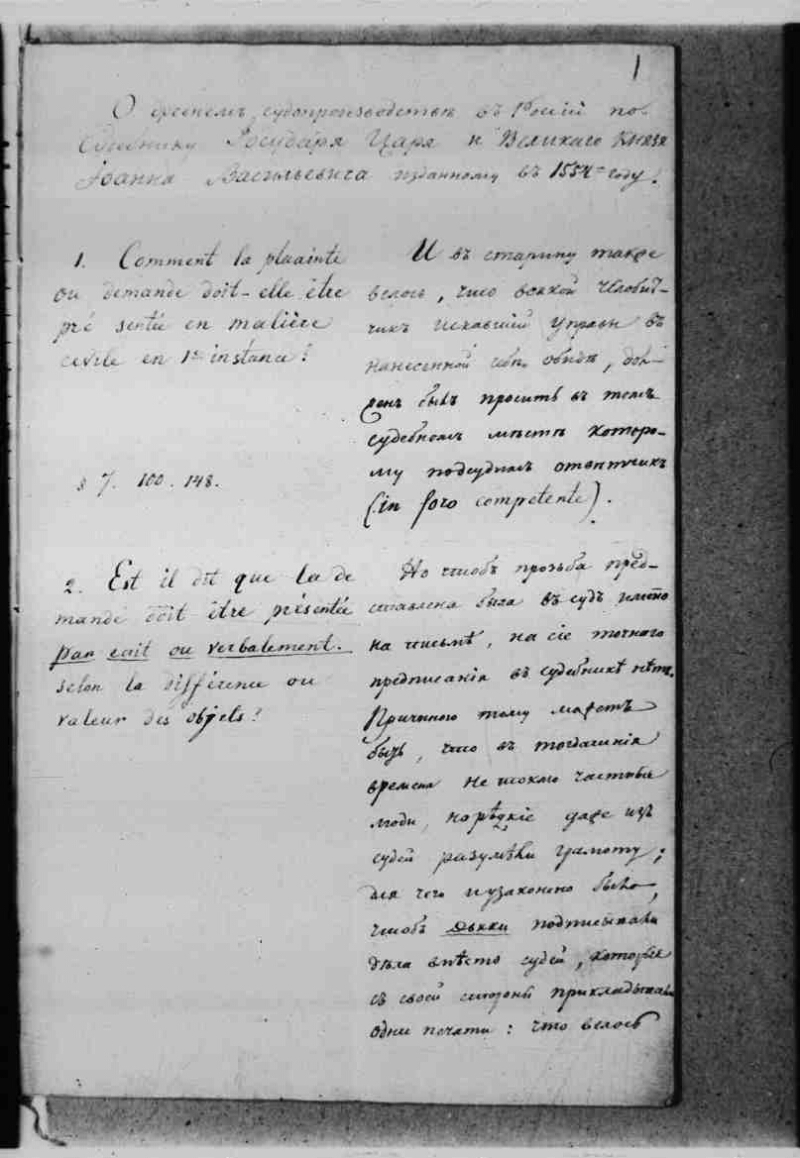 1
О древнемъ судопроизводствѣ въ Россіи по
Судебнику Государя Царя и Великаго Князя
Іоанна Васильевича изданному въ 1554 = году.
1. Comment la plainte
ou demande doit-elle être
pré sentée en matière
civile en 1re instance?
§ 7. 100. 148.
И въ старину также
велось, что всякой челобит-
чикъ искавшій управы въ
нанесенной себѣ обидѣ, дол-
женъ былъ просить въ томъ
судебномъ мѣстѣ которо-
му подсудимъ отвѣтчикъ
(in foro competente).
2. Est il dit que la de
mande doit être présentée
par écrit ou verbalement.
selon la différence ou
valeur des objets?
Но чтобъ прозьба пред-
ставлена была въ судъ имянно
на письмѣ, на сіе точнаго
предписанія въ судебникѣ нѣтъ.
Причиною тому можетъ
быть, что въ тогдашнія
времена не токмо частные
люди, но рѣдкіе даже изъ
судей разумѣли грамоту;
для чего и узаконено было,
чтобъ дьяки подписывали
дѣла вмѣсто судей, которые
съ своей стороны прикладывали
одни печати: что велось